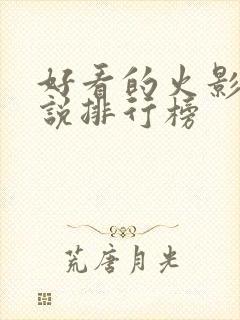 好看的火影
说排行榜
荒唐月光